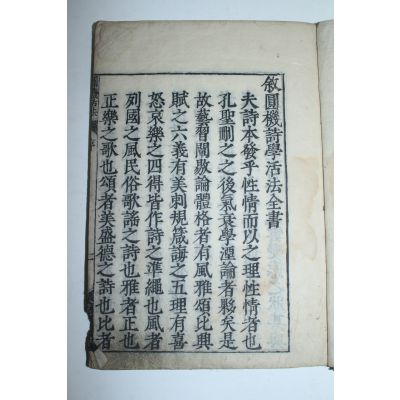 敘圓機詩學活法全書
夫詩本發乎性情而以之理性情者也
孔聖刪之之後氣衰學湮論者夥矣是
故藝習闡歟論體格者有風雅頌比興
賦之六義有美刺規箴誨之五理有喜
怒哀樂之四得皆作詩之準繩也風者
列國之風民俗歌謠之詩也雅者正也
正樂之歌也頌者美盛德之詩也比者